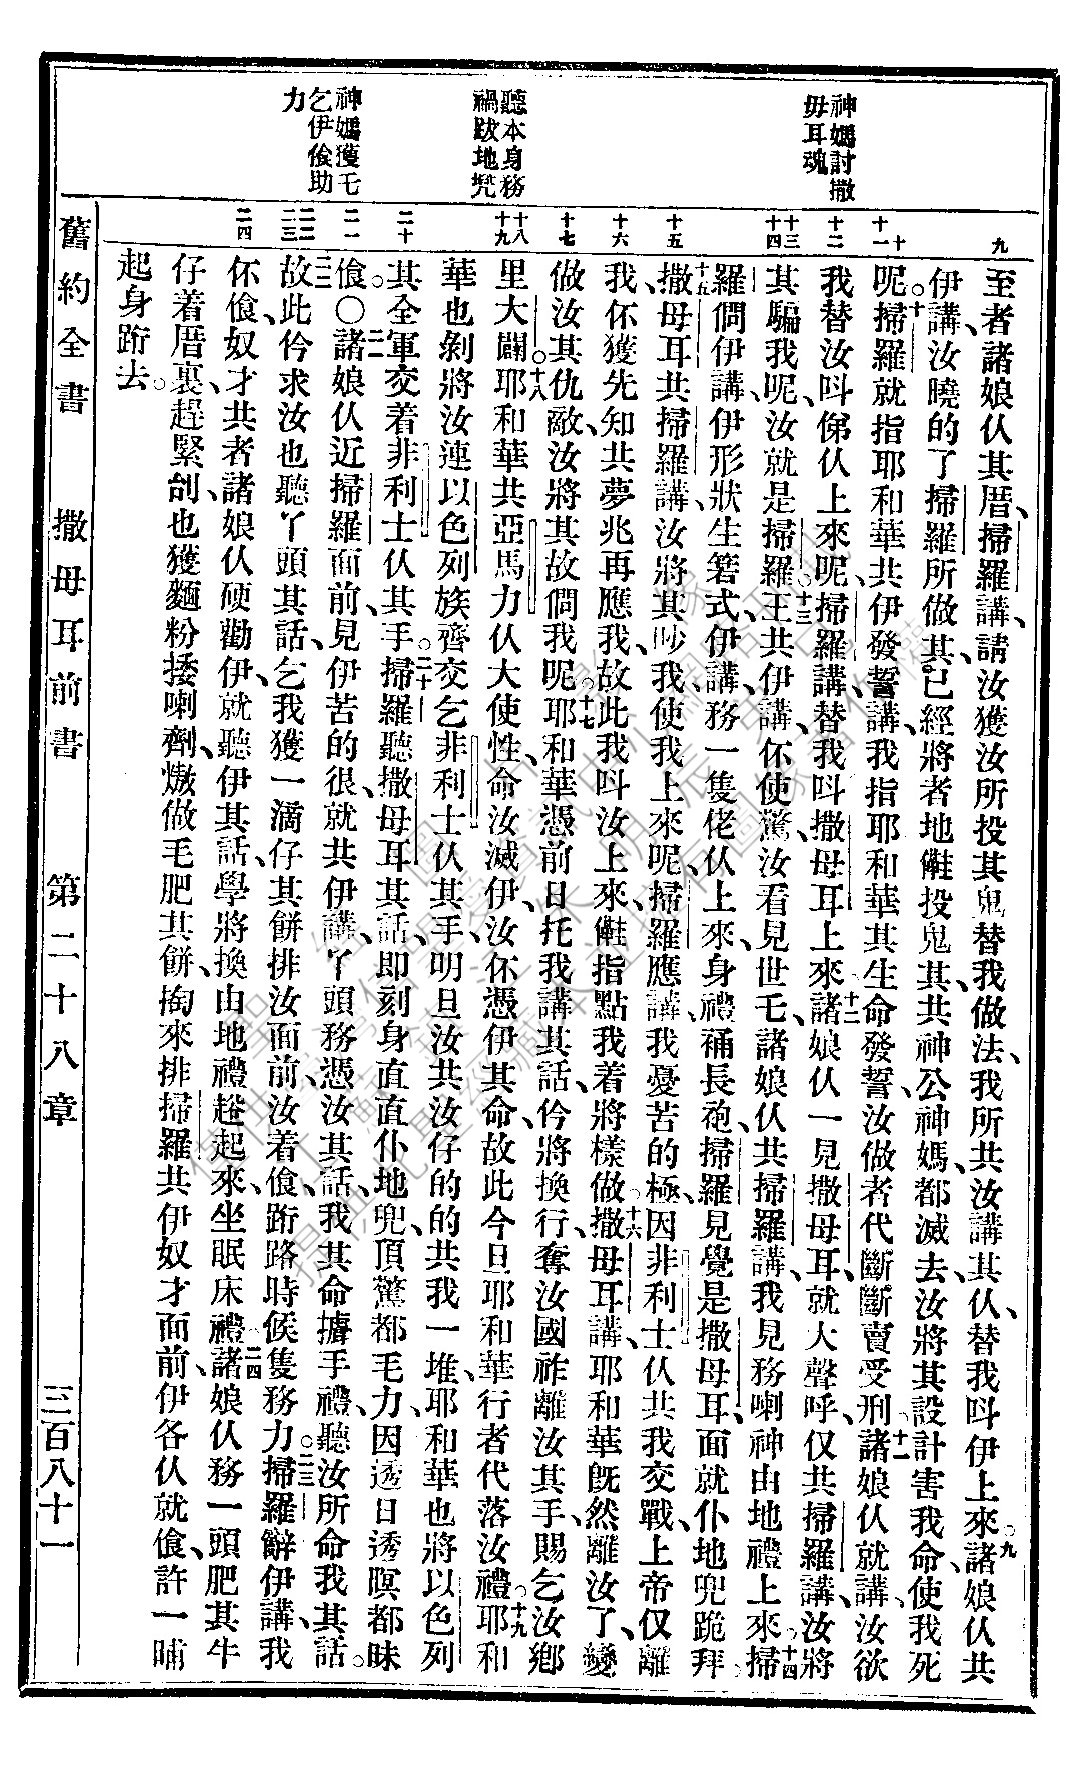 神媽討撒
毋耳魂
聽本身務
禍跋地兜
神媽獲乇
乞伊儉助
力
九
十
十一
十二
十三
十四
十五
十六
十七
十八
十九
二十
二一
二二
二三
二四
至者諸娘仈其厝、掃羅講、請汝獲汝所投其鬼替我做法、我所共汝講其仈、替我呌伊上來。九諸娘仈共
伊講、汝曉的了掃羅所做其、已經將者地𣍐投鬼其、共神公神媽、都滅去、汝將其設計害我命、使我死
呢。十掃羅就指耶和華共伊發誓講、我指耶和華其生命發誓、汝做者代斷斷賣受刑。十一諸娘仈就講、汝欲
我替汝呌俤仈上來呢、掃羅講、替我呌撒母耳上來。十二諸娘仈一見撒母耳、就大聲呼、仅共掃羅講、汝將
其騙我呢、汝就是掃羅。十三王共伊講、伓使驚、汝看見世乇、諸娘仈共掃羅講、我見務喇神由地禮上來。十四掃
羅僩伊講、伊形狀生箬式、伊講、務一隻佬仈上來、身禮裲長砲、掃羅見覺是撒母耳、面就仆地兜跪拜。
十五撒母耳共掃羅講、汝將其吵我、使我上來呢、掃羅應講、我憂苦的極、因非利士仈共我交戰、上帝仅離
我、伓獲先知共夢兆再應我、故此我呌汝上來、𣍐指點我着將樣做。十六撒母耳講、耶和華旣然離汝了、變
做汝其仇敵、汝將其故僩我呢。十七耶和華憑前日托我講其話、伱將換行、奪汝國祚離汝其手、賜乞汝鄉
里大闢。十八耶和華共亞馬力仈大使性、命汝滅伊、汝伓憑伊其命、故此今旦耶和華行者代落汝禮。十九耶和
華也剝將汝連以色列族齊交乞非利士仈其手、明旦汝共汝仔的的共我一堆、耶和華也將以色列
其全軍交着非利士仈其手。二十掃羅聽撒母耳其話、即刻身直直仆地兜、頂驚都毛力、因透日透暝都昧
飡。○二一諸娘仈近掃羅面前、見伊苦的很、就共伊講、丫頭務憑汝其話、我其命攎手禮、聽汝所命我其話。
二二故此伱求汝也聽丫頭其話、乞我獲一滴仔其餅排汝面前、汝着飡、跻路時候隻務力。二三掃羅辭伊講、我
伓飡、奴才共者諸娘仈硬勸伊、就聽伊其話、學將換由地禮趒起來、坐眠床禮。二四諸娘仈務一頭肥其牛
仔着厝裏、趕緊刣、也獲麵粉捼喇劑、燉做毛肥其餅、掏來排掃羅共伊奴才面前、伊各仈就飡、許一晡
起身跻去。
舊約全書　撒母耳前書　第二十八章　三百八十一